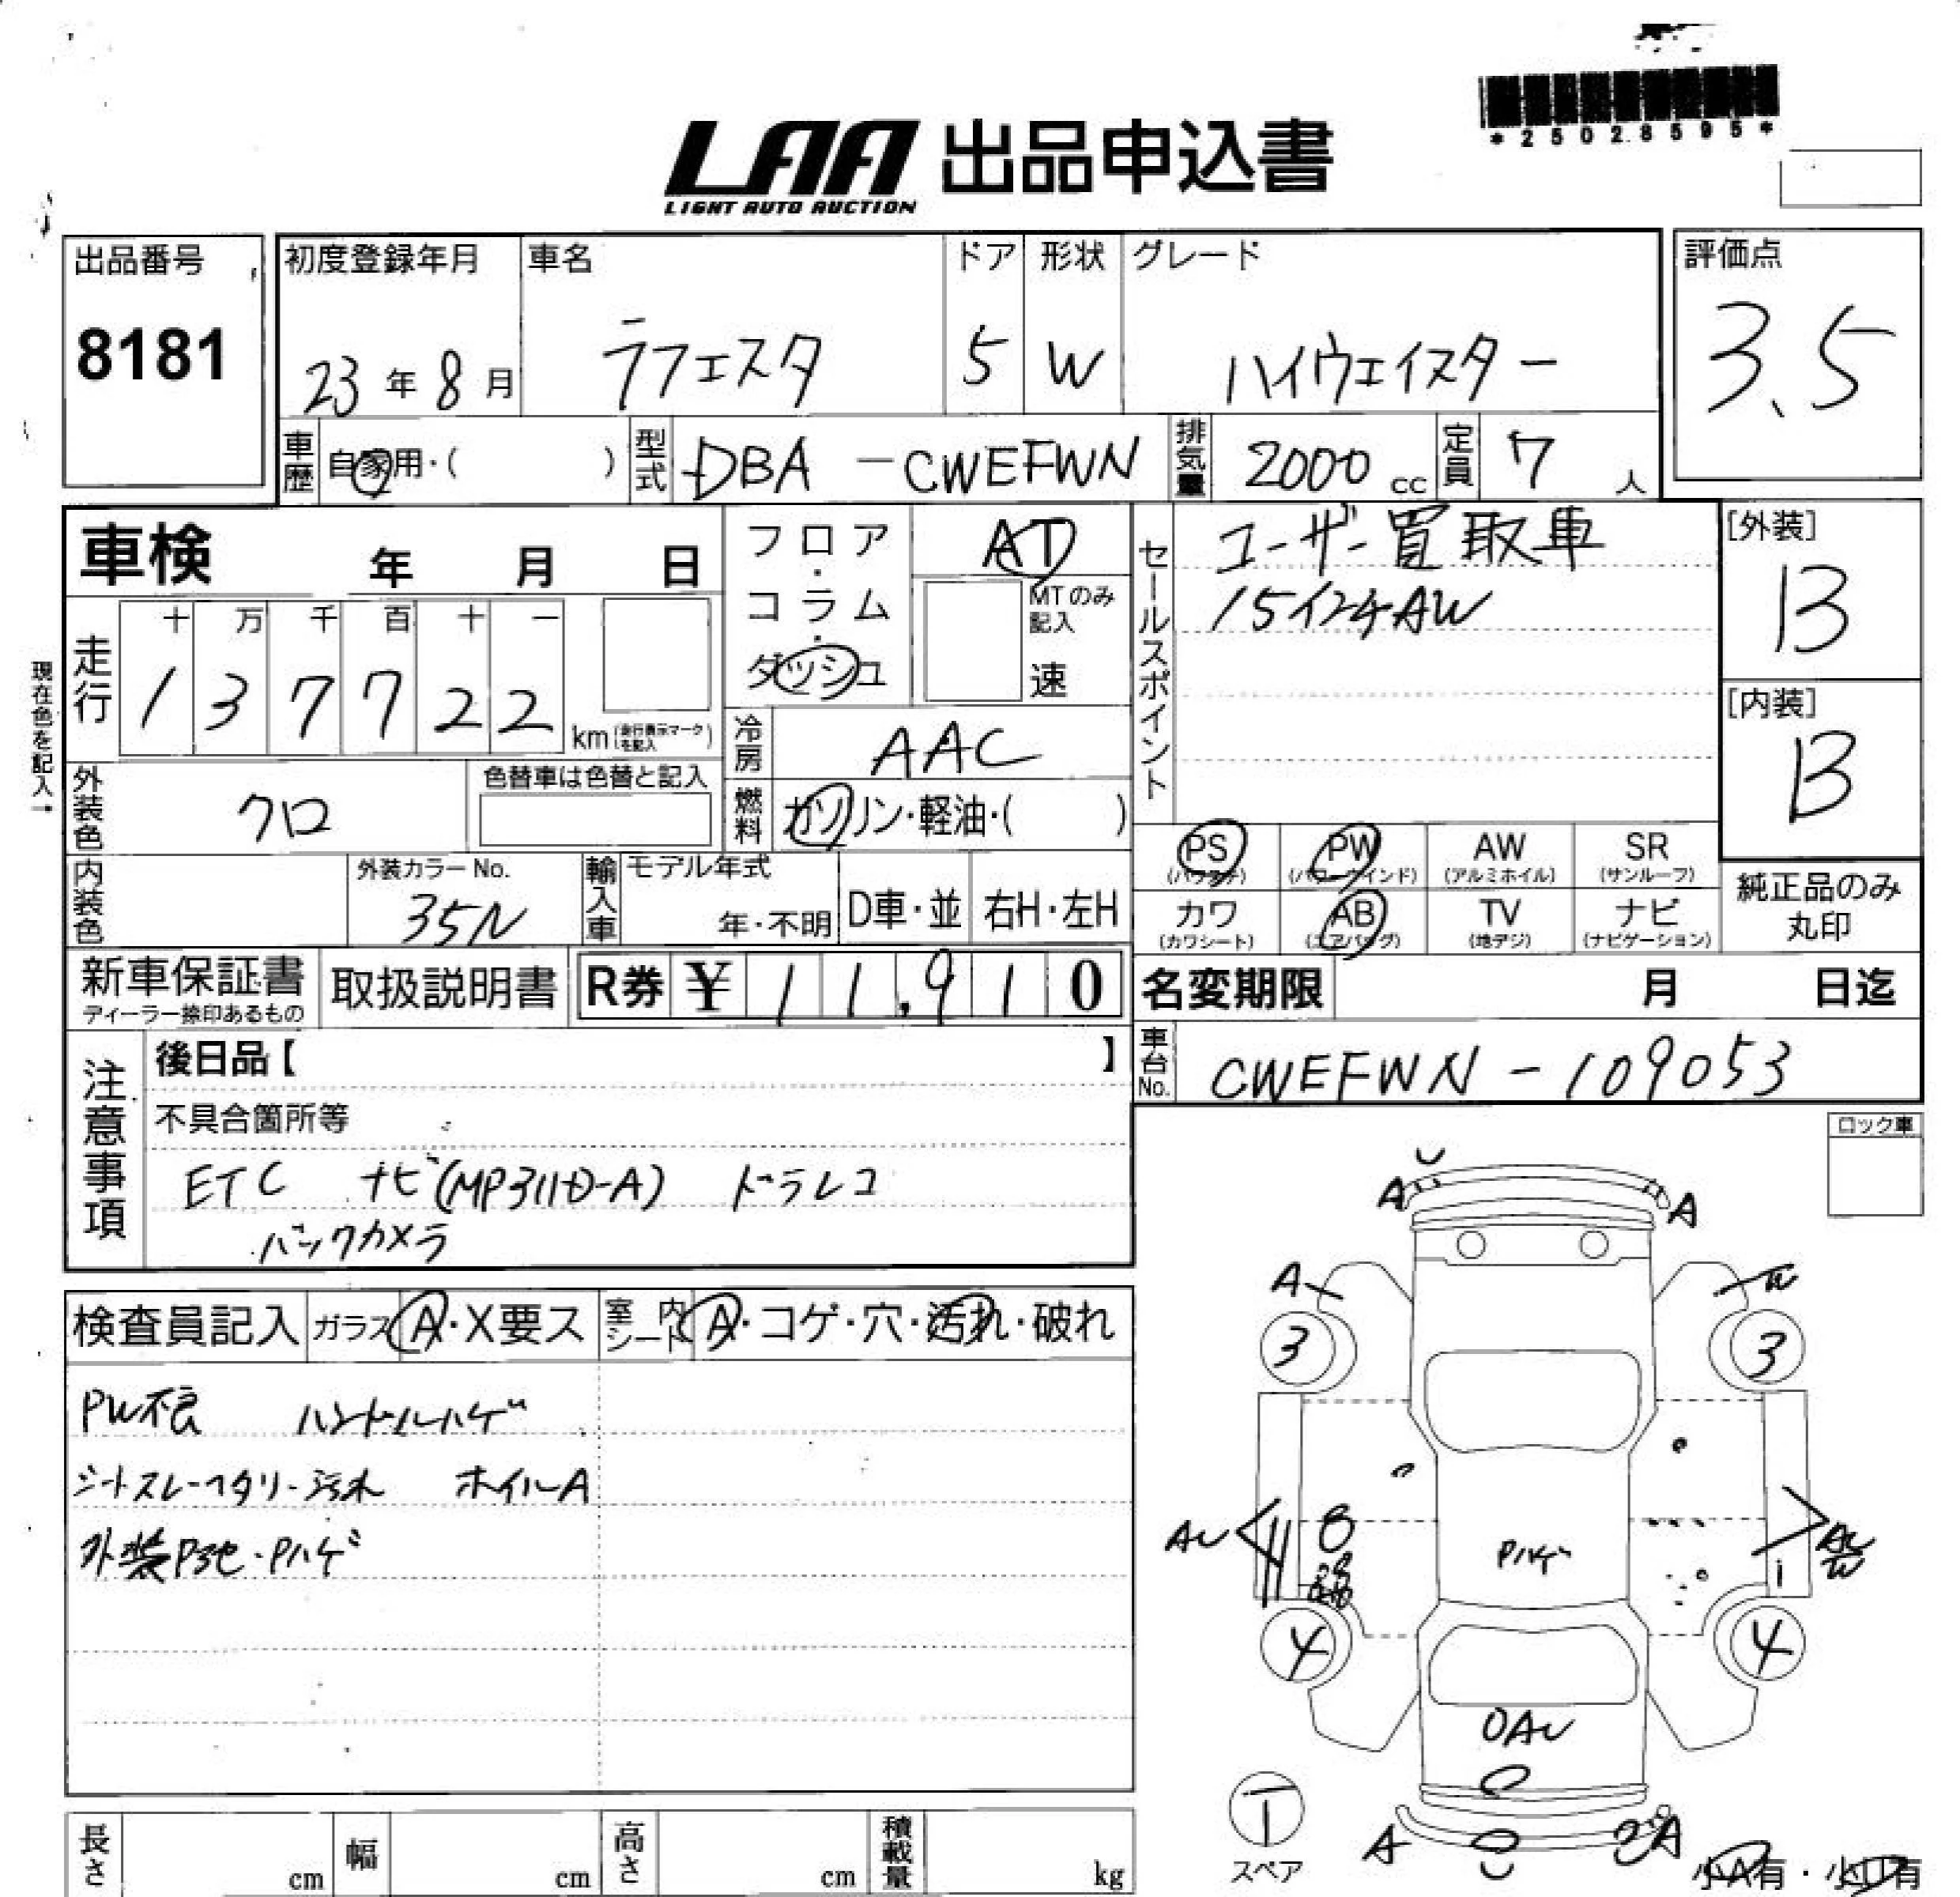 *25028595*
LAA 出品申込書
LIGHT AUTO AUCTION
出品番号 8181
初度登録年月 23年8月
車名 ラフェスタ
ドア 5
形状 W
グレード ハイウェイスター
評価点 3.5
車歴 自家用・( )
型式 DBA-CWEFWN
排気量 2000 cc
定員 7 人
車検 年 月 日
フロア・コラム・ダッシュ
AT
MTのみ記入 速
セールスポイント
ユーザー買取車
15インチAW
[外装] B
[内装] B
現在色を記入→
走行 十 万 千 百 十 一
1 3 7 7 2 2 km (走行表示マークを記入)
冷房 AAC
燃料 ガソリン・軽油・( )
外装色 クロ
色替車は色替と記入
内装色
外装カラーNo. 35N
輸入車 モデル年式 年・不明 D車・並 右H・左H
PS (パワステ) PW (パワーウインド) AW (アルミホイル) SR (サンルーフ)
カワ (カワシート) AB (エアバッグ) TV (地デジ) ナビ (ナビゲーション)
純正品のみ丸印
新車保証書 ディーラー捺印あるもの
取扱説明書
R券 ¥ 11,910
名変期限 月 日迄
車台No. CWEFWN-109053
注意事項
後日品【 】
不具合箇所等
ETC ナビ(MP311D-A) ドラレコ
バックカメラ
ロック車
検査員記入 ガラス A・X要ス 室内シート A・コゲ・穴・汚れ・破れ
PW不良 ハンドルハゲ
シートスレ・ヘタリ・汚れ ホイルA
外装Pボセ・Pハゲ
A A
A W
3 3
AU B
Pハゲ
AU W
4 4
AU
A A
1 スペア
小A有・小U有
長さ cm 幅 cm 高さ cm 積載量 kg